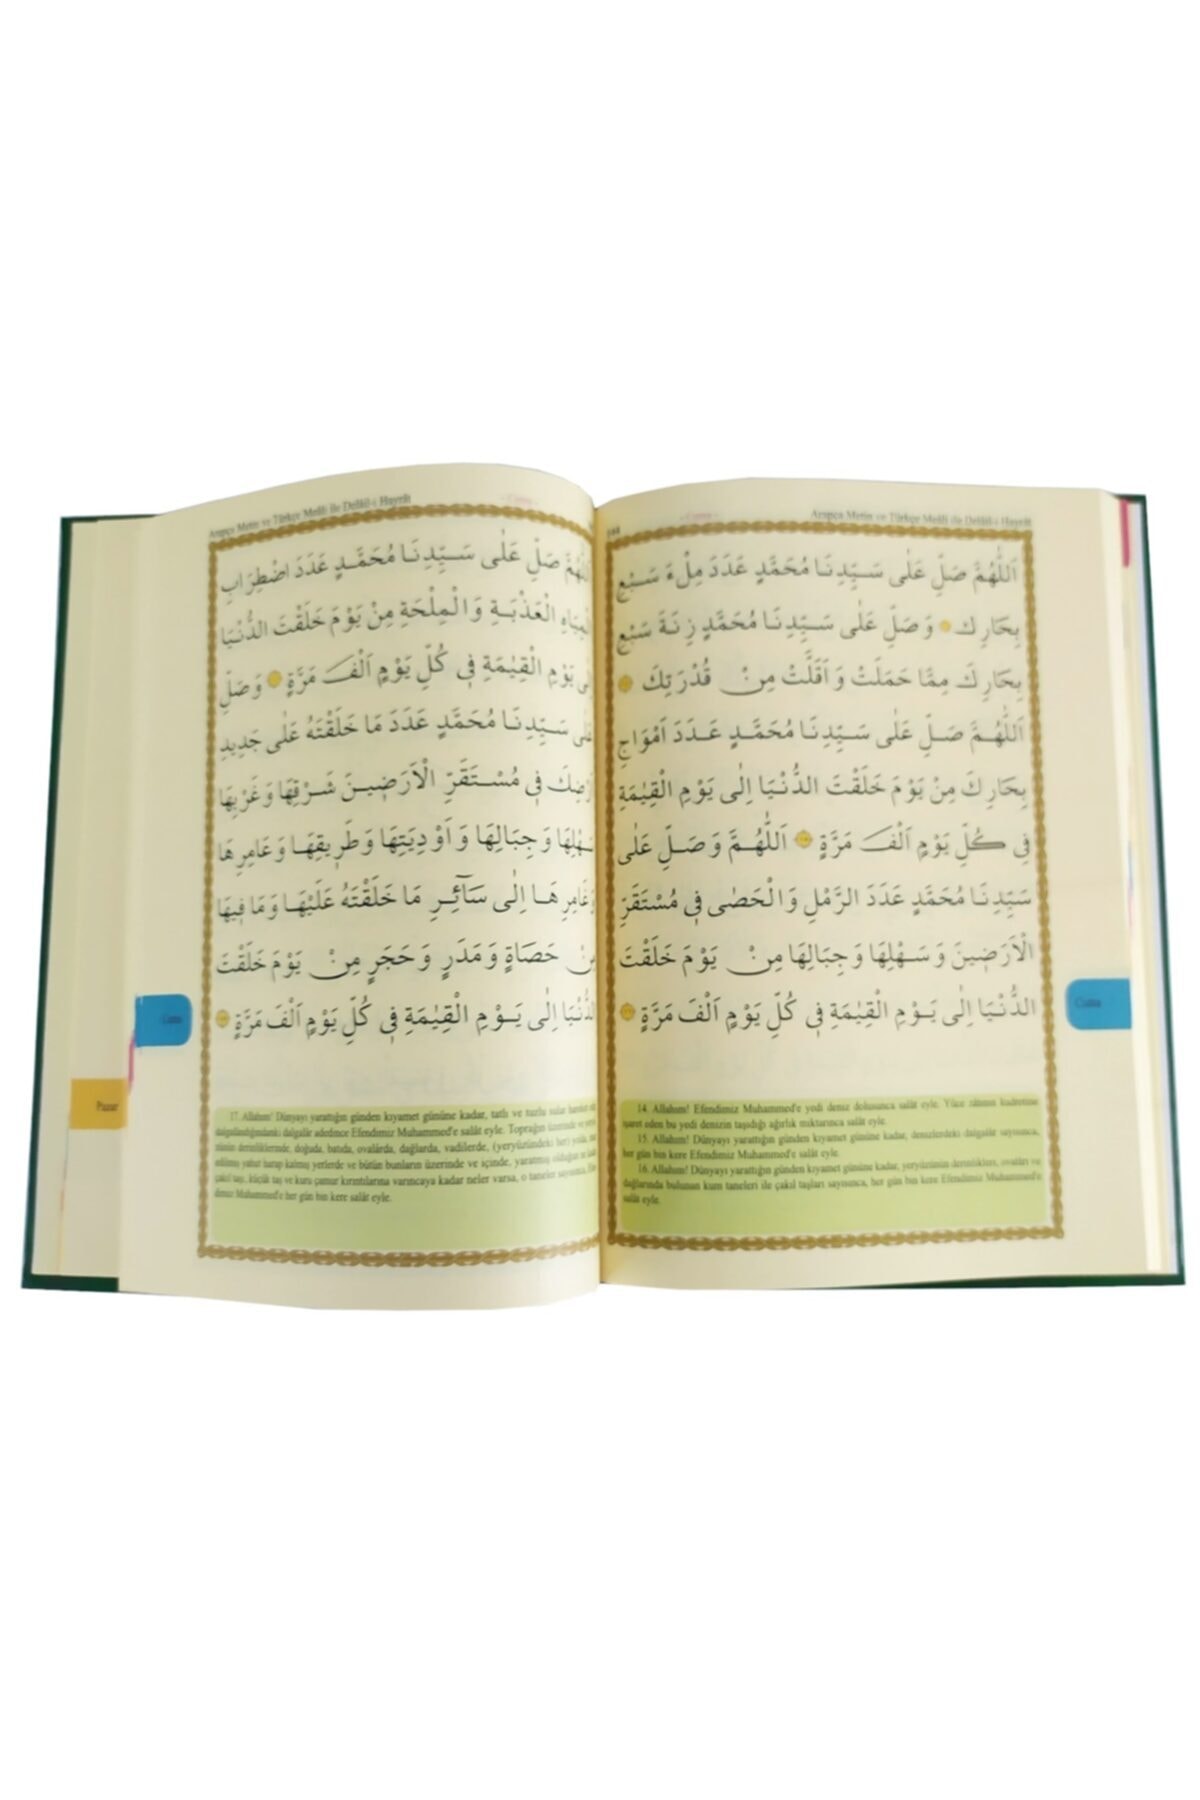 Arapça Metin ve Türkçe Meâli ile Delâil-i Hayrât
- Cuma -
اَللّٰهُمَّ صَلِّ عَلٰى سَيِّدِنَا مُحَمَّدٍ عَدَدَ مِلْءَ سَبْعِ
بِحَارِكَ وَصَلِّ عَلٰى سَيِّدِنَا مُحَمَّدٍ زِنَةَ سَبْعِ
بِحَارِكَ مِمَّا حَمَلَتْ وَاَقَلَّتْ مِنْ قُدْرَتِكَ
اَللّٰهُمَّ صَلِّ عَلٰى سَيِّدِنَا مُحَمَّدٍ عَدَدَ اَمْوَاجِ
بِحَارِكَ مِنْ يَوْمَ خَلَقْتَ الدُّنْيَا اِلٰى يَوْمِ الْقِيٰمَةِ
فِي كُلِّ يَوْمٍ اَلْفَ مَرَّةٍ اَللّٰهُمَّ وَصَلِّ عَلٰى
سَيِّدِنَا مُحَمَّدٍ عَدَدَ الرَّمْلِ وَالْحَصٰى فِي مُسْتَقَرِّ
الْاَرَضِينَ وَسَهْلِهَا وَجِبَالِهَا مِنْ يَوْمَ خَلَقْتَ
الدُّنْيَا اِلٰى يَوْمِ الْقِيٰمَةِ فِي كُلِّ يَوْمٍ اَلْفَ مَرَّةٍ
14. Allahım! Efendimiz Muhammed'e yedi deniz dolusunca salât eyle. Yüce zâtının kudretine
işaret eden bu yedi denizin taşıdığı ağırlık miktarınca salât eyle.
15. Allahım! Dünyayı yarattığın günden kıyamet gününe kadar, denizlerdeki dalgalar sayısınca,
her gün bin kere Efendimiz Muhammed'e salât eyle.
16. Allahım! Dünyayı yarattığın günden kıyamet gününe kadar, yeryüzünün derinlikleri, ovaları ve
dağlarında bulunan kum taneleri ile çakıl taşları sayısınca, her gün bin kere Efendimiz Muhammed'e
salât eyle.
Cuma
Arapça Metin ve Türkçe Meâli ile Delâil-i Hayrât
- Cuma -
اَللّٰهُمَّ صَلِّ عَلٰى سَيِّدِنَا مُحَمَّدٍ عَدَدَ اضْطِرَابِ
الْمِيَاهِ الْعَذْبَةِ وَالْمِلْحَةِ مِنْ يَوْمَ خَلَقْتَ الدُّنْيَا
اِلٰى يَوْمِ الْقِيٰمَةِ فِي كُلِّ يَوْمٍ اَلْفَ مَرَّةٍ وَصَلِّ
عَلٰى سَيِّدِنَا مُحَمَّدٍ عَدَدَ مَا خَلَقْتَهُ عَلٰى جَدِيدِ
اَرْضِكَ فِي مُسْتَقَرِّ الْاَرَضِينَ شَرْقِهَا وَغَرْبِهَا
سَهْلِهَا وَجِبَالِهَا وَاَوْدِيَتِهَا وَطَرِيقِهَا وَعَامِرِهَا
وَغَامِرِهَا اِلٰى سَآئِرِ مَا خَلَقْتَهُ عَلَيْهَا وَمَا فِيهَا
مِنْ حَصَاةٍ وَمَدَرٍ وَحَجَرٍ مِنْ يَوْمَ خَلَقْتَ
الدُّنْيَا اِلٰى يَوْمِ الْقِيٰمَةِ فِي كُلِّ يَوْمٍ اَلْفَ مَرَّةٍ
17. Allahım! Dünyayı yarattığın günden kıyamet gününe kadar, tatlı ve tuzlu sular hareket
dalgalandığındaki dalgalar adedince Efendimiz Muhammed'e salât eyle. Toprağın üzerinde ve
derinliklerinde, doğuda, batıda, ovalarda, dağlarda, vadilerde, (yeryüzündeki her) yolda,
edilmiş yahut harap kalmış yerlerde ve bütün bunların üzerinde ve içinde, yaratmış olduğun
çakıl taşı, küçük taş ve kuru çamur kırıntılarına varıncaya kadar neler varsa, o taneler sayısınca,
dimiz Muhammed'e her gün bin kere salât eyle.
Cuma
Pazar